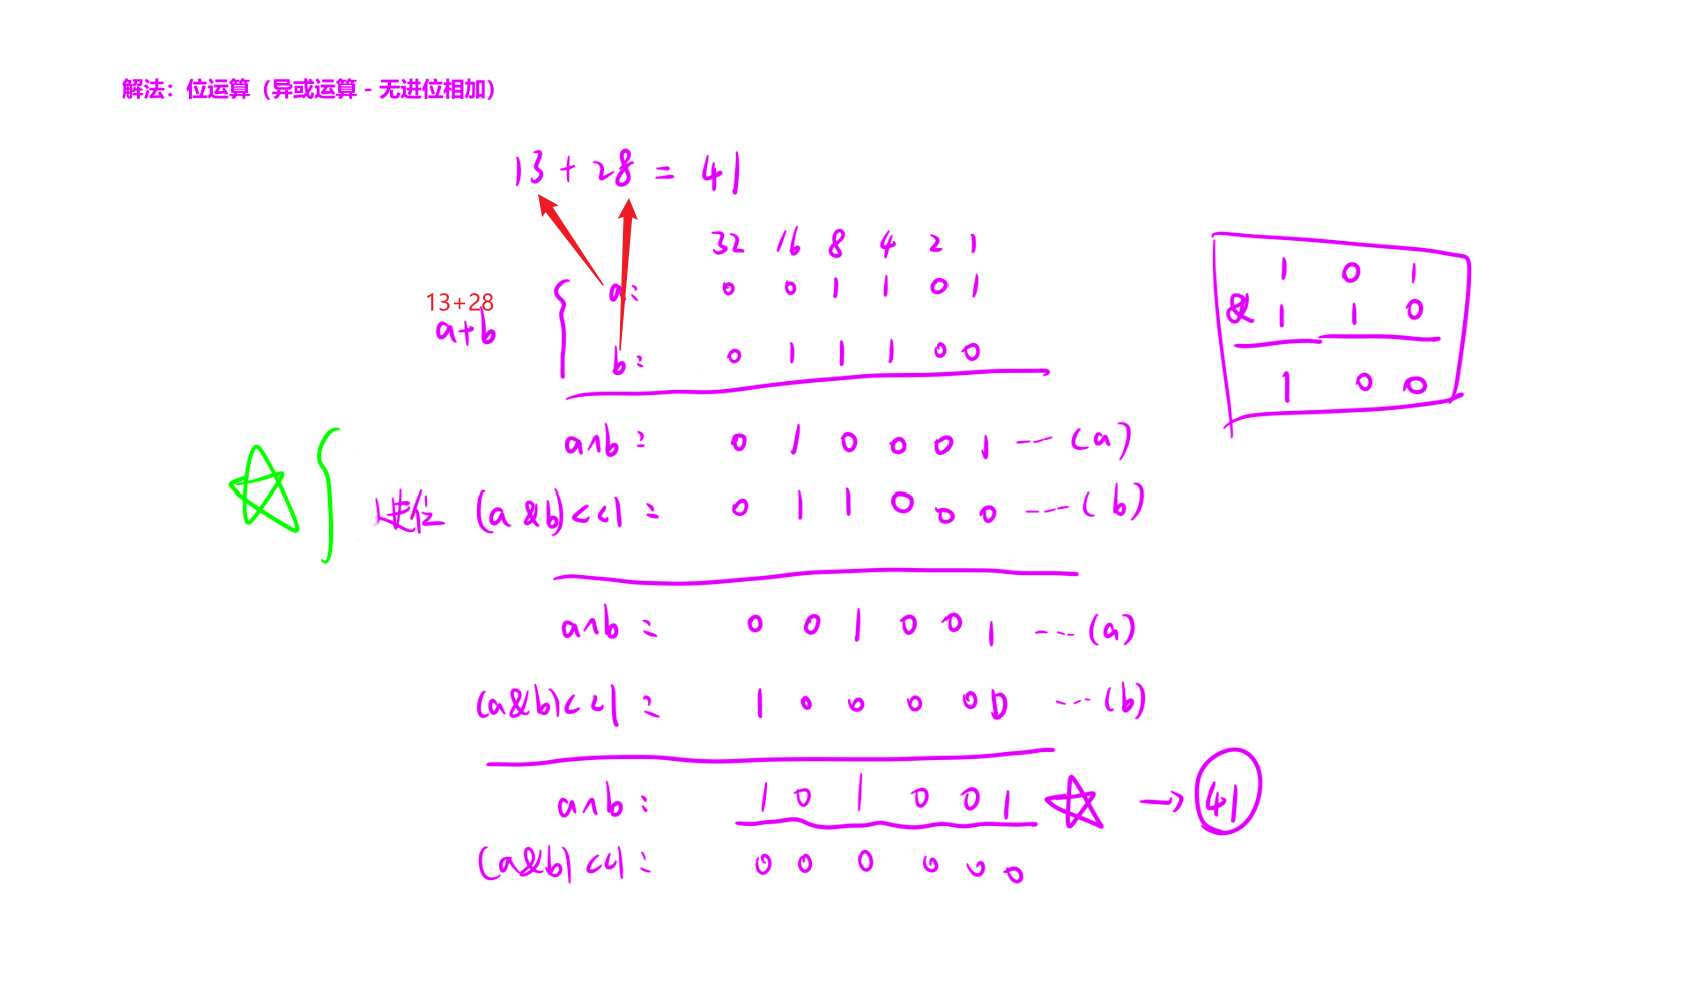 解法：位运算（异或运算 - 无进位相加）
13 + 28 = 41
32 16 8 4 2 1
a: 0 0 1 1 0 1
13+28
a+b
b: 0 1 1 1 0 0
1 0 1
& 1 1 0
1 0 0
a^b: 0 1 0 0 0 1 --- (a)
进位 (a&b)<<1 = 0 1 1 0 0 0 --- (b)
a^b = 0 0 1 0 0 1 --- (a)
(a&b)<<1 = 1 0 0 0 0 0 --- (b)
a^b: 1 0 1 0 0 1 → 41
(a&b)<<1: 0 0 0 0 0 0